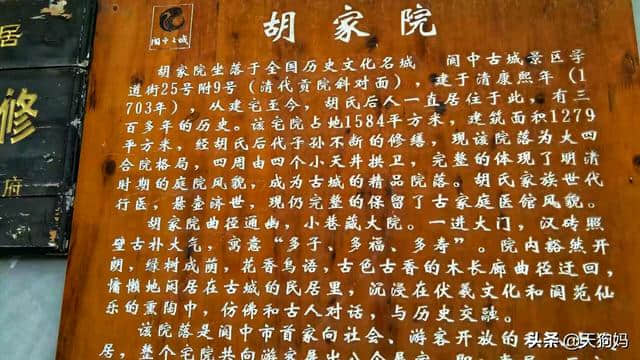 居
修
府
阆中古城
胡家院
胡家院坐落于全国历史文化名城 阆中古城景区学
道街25号附9号（清代贡院斜对面），建于清康熙年（1
703年），从建宅至今，胡氏后人一直居住于此，有三
百多年的历史。该宅院占地1584平方米，建筑面积1279
平方米，经胡氏后代子孙不断的修缮，现该院落为大四
合院格局，四周由四个小天井拱卫，完整的体现了明清
时期的庭院风貌，成为古城的精品院落。胡氏家族世代
行医，悬壶济世，现仍完整的保留了古家庭医馆风貌。
胡家院曲径通幽，小巷藏大院。一进大门，汉砖照
壁古朴大气，寓意“多子、多福、多寿”。院内豁然开
朗，绿树成荫，花香鸟语，古色古香的木长廊曲径迂回，
慵懒地闲居在古城的民居里，沉浸在伏羲文化和阆苑仙
乐的熏陶中，仿佛和古人对话，与历史交融。
该院落是阆中市首家向社会、游客开放的私
居，整个宅院共向游客展出八个展
头条 @天狗妈